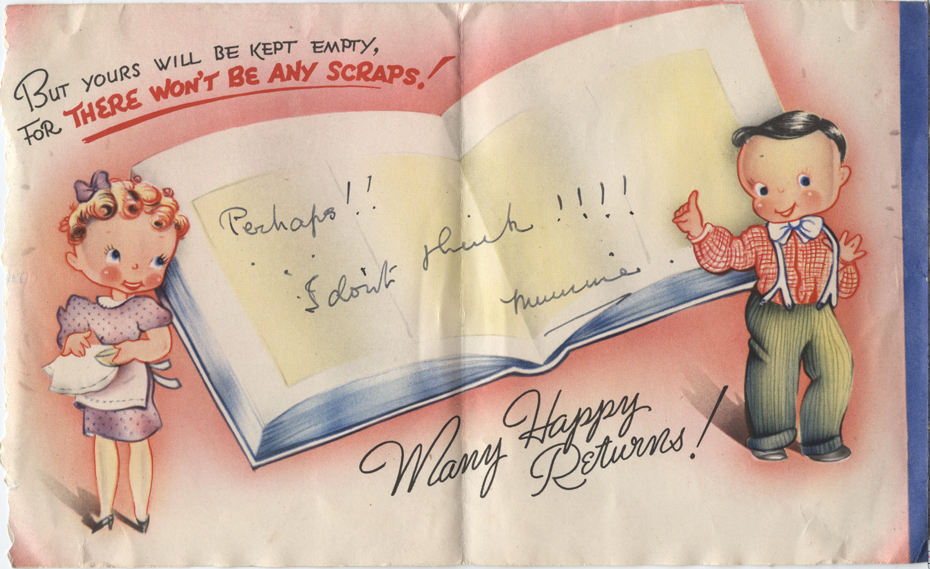 BUT YOURS WILL BE KEPT EMPTY,
FOR THERE WON'T BE ANY SCRAPS!
Perhaps!!
... I don't think !!!!
Mummie.
Many Happy
Returns!